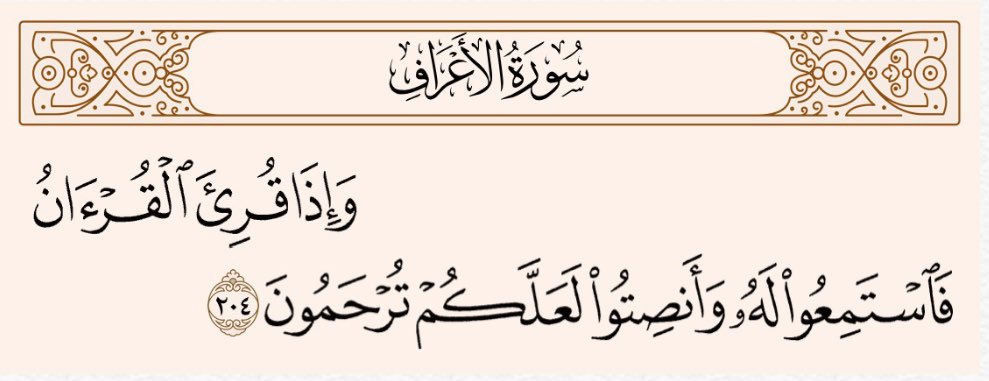 سُورَةُ الأَعْرَافِ
وَإِذَا قُرِئَ ٱلْقُرْءَانُ
فَٱسْتَمِعُوا۟ لَهُۥ وَأَنصِتُوا۟ لَعَلَّكُمْ تُرْحَمُونَ ٢٠٤